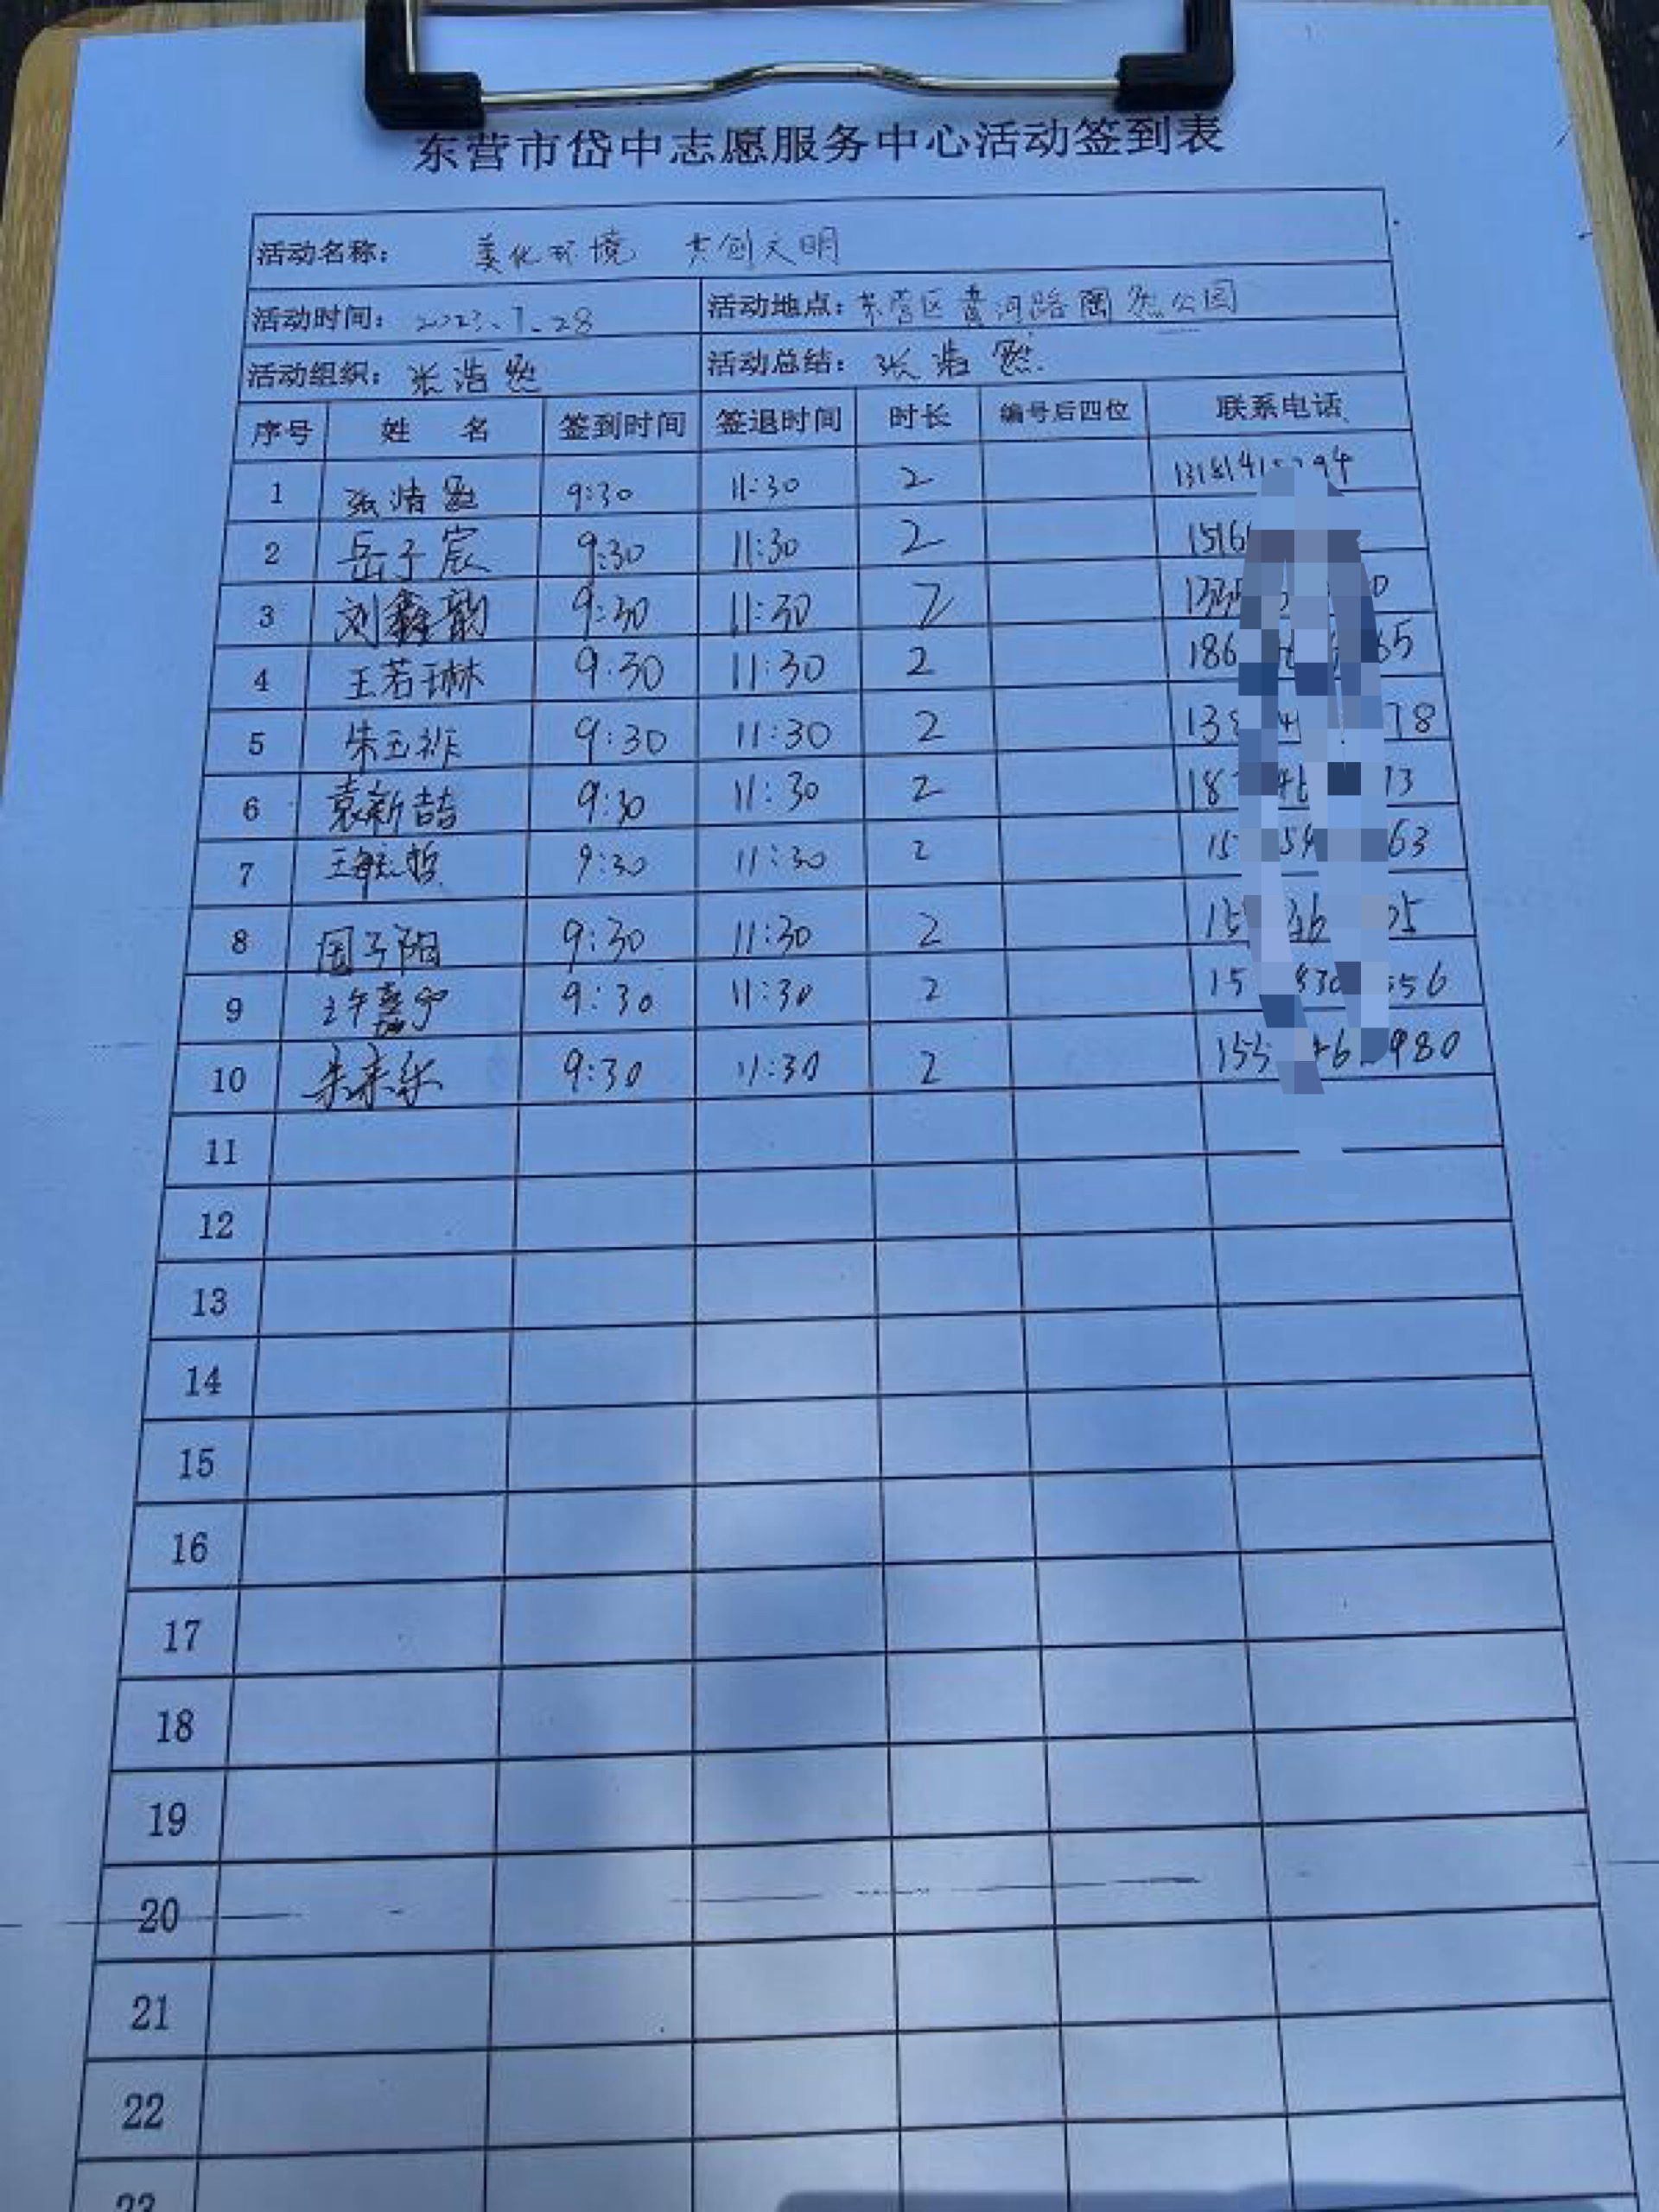 东营市岱中志愿服务中心活动签到表
活动名称： 美化环境 共创文明
活动时间：2023.7.28 活动地点：东营区黄河路陶然公园
活动组织：张浩然 活动总结：张浩然
序号 姓 名 签到时间 签退时间 时长 编号后四位 联系电话
1 张浩然 9:30 11:30 2
2 岳子宸 9:30 11:30 2
3 刘鑫韵 9:30 11:30 2
4 王若琳 9:30 11:30 2
5 朱玉祚 9:30 11:30 2
6 袁新喆 9:30 11:30 2
7 9:30 11:30 2
8 国子阳 9:30 11:30 2
9 许嘉宁 9:30 11:30 2
10 9:30 11:30 2
11
12
13
14
15
16
17
18
19
20
21
22
23